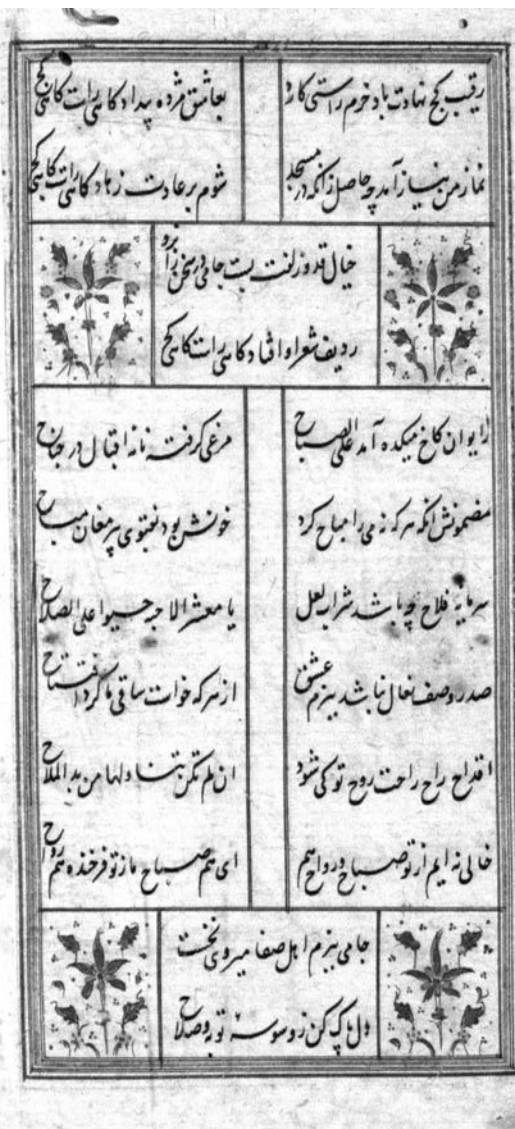 رقیب کج نهادت باد خرم راستی کارد بعاشق مژده بیداد کاهی راست کاهی کج
نماز من نیاز آمد چه حاصل زانکه در مسجد شوم بر عادت زهاد کاهی راست کاهی کج
خیال قد و زلفت بست جامی در سخن زانرو
ردیف شعر او افتاد کاهی راست کاهی کج
زایوان کاخ میکده آمد علی الصباح مرغی گرفته نامه اقبال در جناح
مضمونش آنکه هر که نه می را مباح کرد خونش بود بفتوی پیر مغان مباح
سرمایه فلاح چه باشد شراب لعل یا معشر الاحبه حیوا علی الصلاح
صدر و صف نعال نباشد ببزم عشق از هر که خواست ساقی ما کرد افتتاح
اقداح راح راحت روح تو کی شود ان لم تکن تناولها من ید الملاح
خالی نه ایم از تو صباح و رواح هم ای هم صباح ما ز تو فرخنده هم رواح
جامی ببزم اهل صفا میروی نخست
دل پاک کن ز وسوسه توبه و صلاح